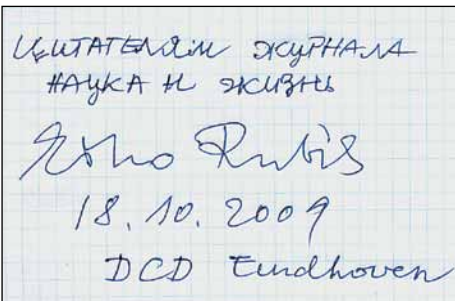 ЦИТАТЕЛЯМ ЖУРНАЛА
НАУКА И ЖИЗНЬ
Erno Rubik
18.10.2009
DCD Eindhoven